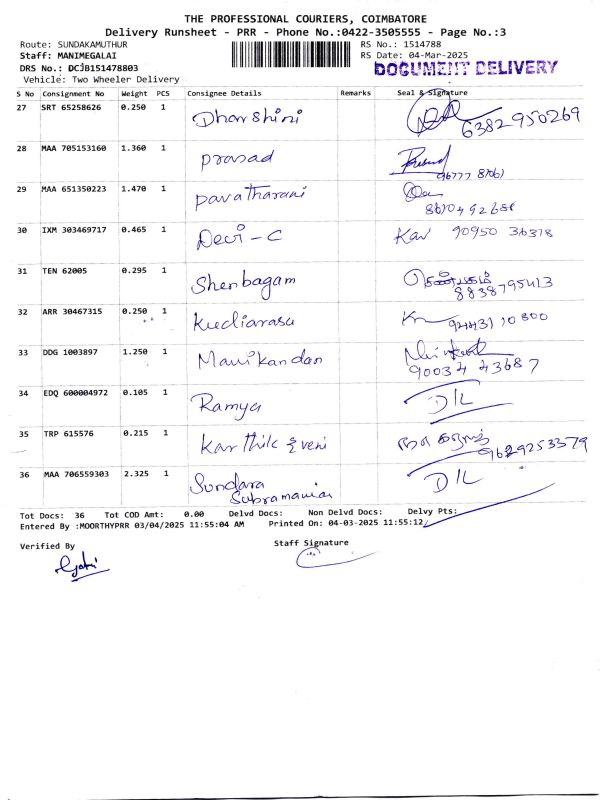 THE PROFESSIONAL COURIERS, COIMBATORE
Delivery Runsheet - PRR - Phone No.:0422-3505555 - Page No.:3
Route: SUNDAKAMUTHUR RS No.: 1514788
Staff: MANIMEGALAI RS Date: 04-Mar-2025
DRS No.: DCJB151478803 DOCUMENT DELIVERY
Vehicle: Two Wheeler Delivery
S No Consignment No Weight PCS Consignee Details Remarks Seal & Signature
27 SRT 65258626 0.250 1 Dharshini 6382950269
28 MAA 705153160 1.360 1 prasad
29 MAA 651350223 1.470 1 pavatharani
30 IXM 303469717 0.465 1 Devi - C Kav 90950 36318
31 TEN 62005 0.295 1 Shenbagam 8838795413
32 ARR 30467315 0.250 1 Kudiarasu 94431 10800
33 DDG 1003897 1.250 1 Manikandan 90034 43687
34 EDQ 600004972 0.105 1 Ramya D/L
35 TRP 615576 0.215 1 Karthik 9629253379
36 MAA 706559303 2.325 1 Sundara Subramanian D/L
Tot Docs: 36 Tot COD Amt: 0.00 Delvd Docs: Non Delvd Docs: Delvy Pts:
Entered By :MOORTHYPRR 03/04/2025 11:55:04 AM Printed On: 04-03-2025 11:55:12
Verified By Staff Signature